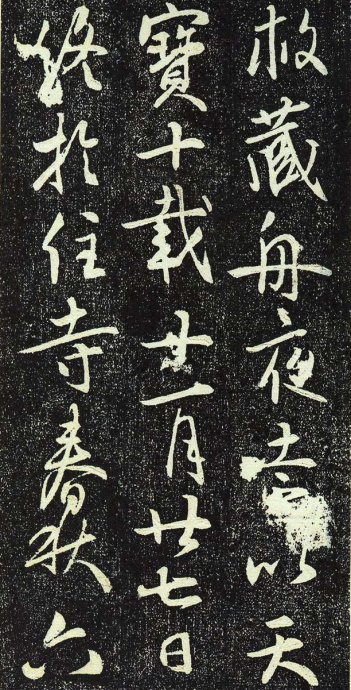 藏舟夜以天
寶十載一月廿七日
終於住寺春秋六